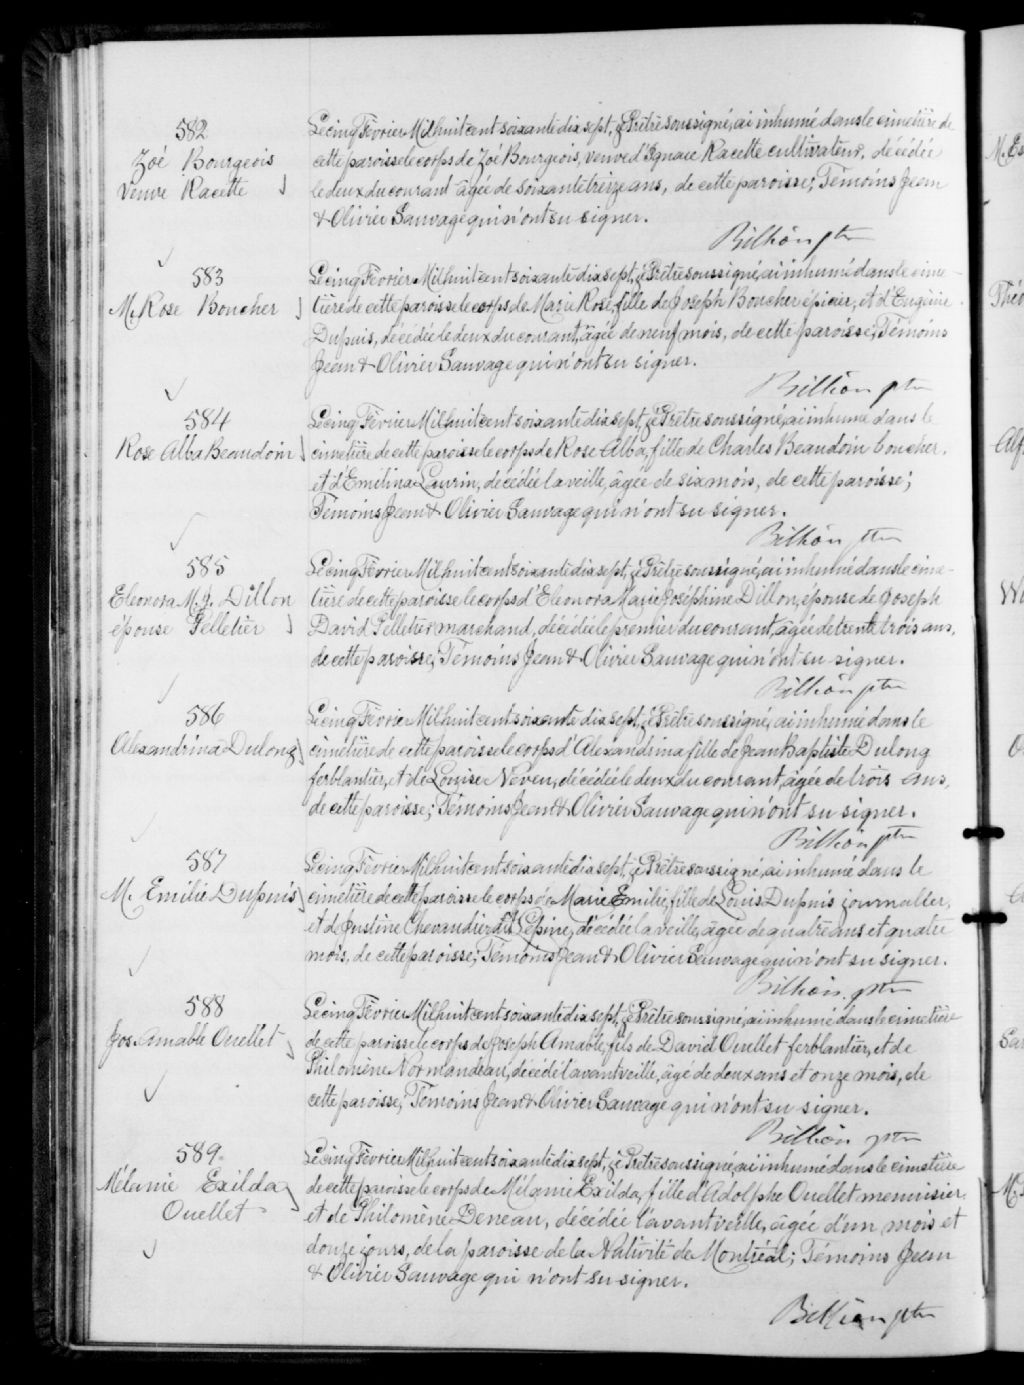 582
Zoé Bourgeois
Veuve Racette
Le cinq Février Mil huit cent soixante dix sept, je Prêtre soussigné, ai inhumé dans le cimetière de
cette paroisse le corps de Zoé Bourgeois, veuve d'Ignace Racette cultivateur, décédée
le deux du courant âgée de soixante treize ans, de cette paroisse; Témoins Jean
& Olivier Sauvage qui n'ont su signer.
Billion ptre
583
M. Rose Boucher
Le cinq Février Mil huit cent soixante dix sept, je Prêtre soussigné, ai inhumé dans le cime-
tière de cette paroisse le corps de Marie Rose, fille de Joseph Boucher épicier, et d'Eugénie
Dupuis, décédée le deux du courant, âgée de neuf mois, de cette paroisse; Témoins
Jean & Olivier Sauvage qui n'ont su signer.
Billion ptre
584
Rose Alba Beaudoin
Le cinq Février Mil huit cent soixante dix sept, je Prêtre soussigné, ai inhumé dans le
cimetière de cette paroisse le corps de Rose Alba, fille de Charles Beaudoin boucher,
et d'Emilina Laurin, décédée la veille, âgée de six mois, de cette paroisse;
Témoins Jean & Olivier Sauvage qui n'ont su signer.
Billion ptre
585
Eleonora M. J. Dillon
épouse Pelletier
Le cinq Février Mil huit cent soixante dix sept, je Prêtre soussigné, ai inhumé dans le cime-
tière de cette paroisse le corps d'Eleonora Marie Joséphine Dillon, épouse de Joseph
David Pelletier marchand, décédée le premier du courant, âgée de trente trois ans,
de cette paroisse; Témoins Jean & Olivier Sauvage qui n'ont su signer.
Billion ptre
586
Alexandrina Dulong
Le cinq Février Mil huit cent soixante dix sept, je Prêtre soussigné, ai inhumé dans le
cimetière de cette paroisse le corps d'Alexandrina fille de Jean Baptiste Dulong
ferblantier, et de Louise Neveu, décédée le deux du courant, âgée de trois ans,
de cette paroisse; Témoins Jean & Olivier Sauvage qui n'ont su signer.
Billion ptre
587
M. Emilie Dupuis
Le cinq Février Mil huit cent soixante dix sept, je Prêtre soussigné, ai inhumé dans le
cimetière de cette paroisse le corps de Marie Emilie, fille de Louis Dupuis journalier,
et de Justine Chevaudier dit Lépine, décédée la veille, âgée de quatre ans et quatre
mois, de cette paroisse; Témoins Jean & Olivier Sauvage qui n'ont su signer.
Billion ptre
588
Jos. Amable Ouellet
Le cinq Février Mil huit cent soixante dix sept, je Prêtre soussigné, ai inhumé dans le cimetière
de cette paroisse le corps de Joseph Amable, fils de David Ouellet ferblantier, et de
Philomène Normandeau, décédé l'avant veille, âgé de deux ans et onze mois, de
cette paroisse; Témoins Jean & Olivier Sauvage qui n'ont su signer.
Billion ptre
589.
Mélanie Exilda
Ouellet
Le cinq Février Mil huit cent soixante dix sept, je Prêtre soussigné, ai inhumé dans le cimetière
de cette paroisse le corps de Mélanie Exilda, fille d'Adolphe Ouellet menuisier,
et de Philomène Deneau, décédée l'avant veille, âgée d'un mois et
douze jours, de la paroisse de la Nativité de Montréal; Témoins Jean
& Olivier Sauvage qui n'ont su signer.
Billion ptre